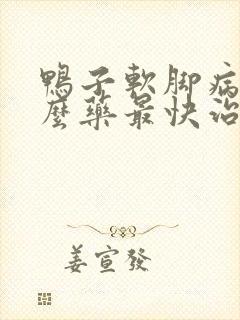 鴨子軟脚病
麼藥最快治
姜宣發